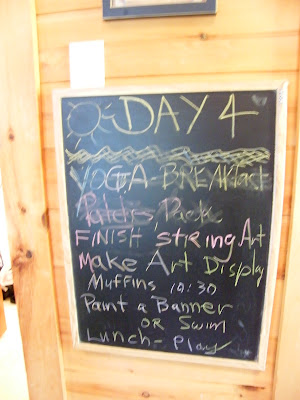 DAY 4
YOGA-BREAKfast
FINISH StRiNg Art
Make Art Display
Muffins 10:30
Paint a Banner
OR Swim
Lunch- Play